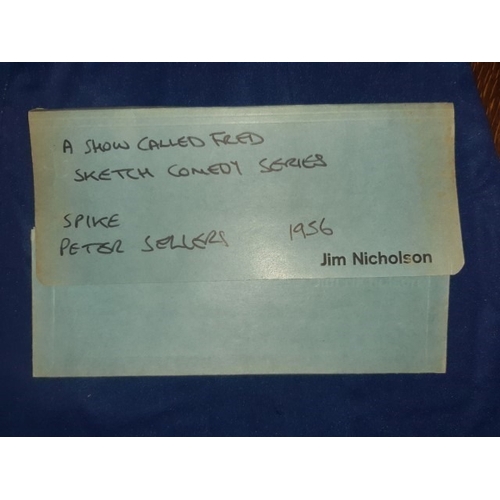 A SHOW CALLED FRED
SKETCH COMEDY SERIES
SPIKE
PETER SELLERS 1956
Jim Nicholson